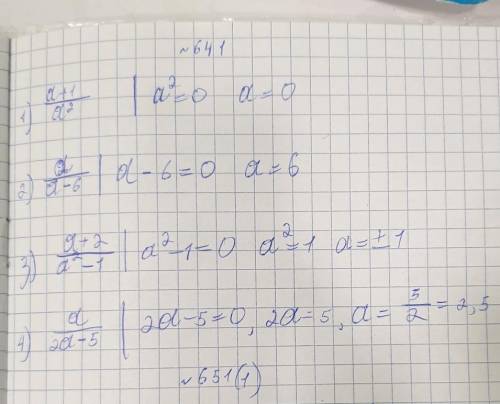 ~641
1) a+1/a² | a²=0 a=0
2) a/a-6 | a-6=0 a=6
3) a+2/a²-1 | a²-1=0 a²=1 a=±1
4) a/2a-5 | 2a-5=0, 2a=5, a=5/2=2,5
~651(1)